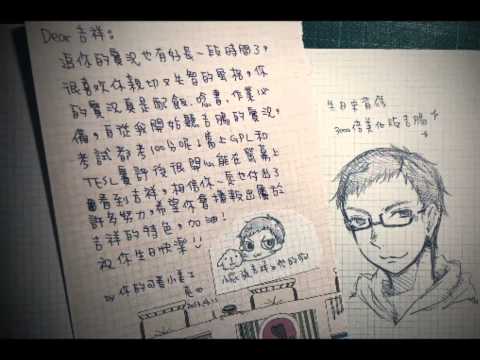 Dear 吉祥:
追你的實況也有好長一段時間了,
很喜歡你親切又失智的風格,你
的實況真是配飯、唸書、作業必
備,自從我開始聽吉祥的實況,
考試都考100分呢!當上GPL和
TESL賽評後很開心能在螢幕上
看到吉祥,相信你一定也付出了
許多努力,希望你會播報出屬於
吉祥的特色,加油!
祝你生日快樂!!
by 你的
生日
3000倍美化版吉